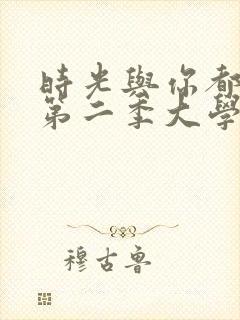 時光與你都
第二季大學
穆古魯